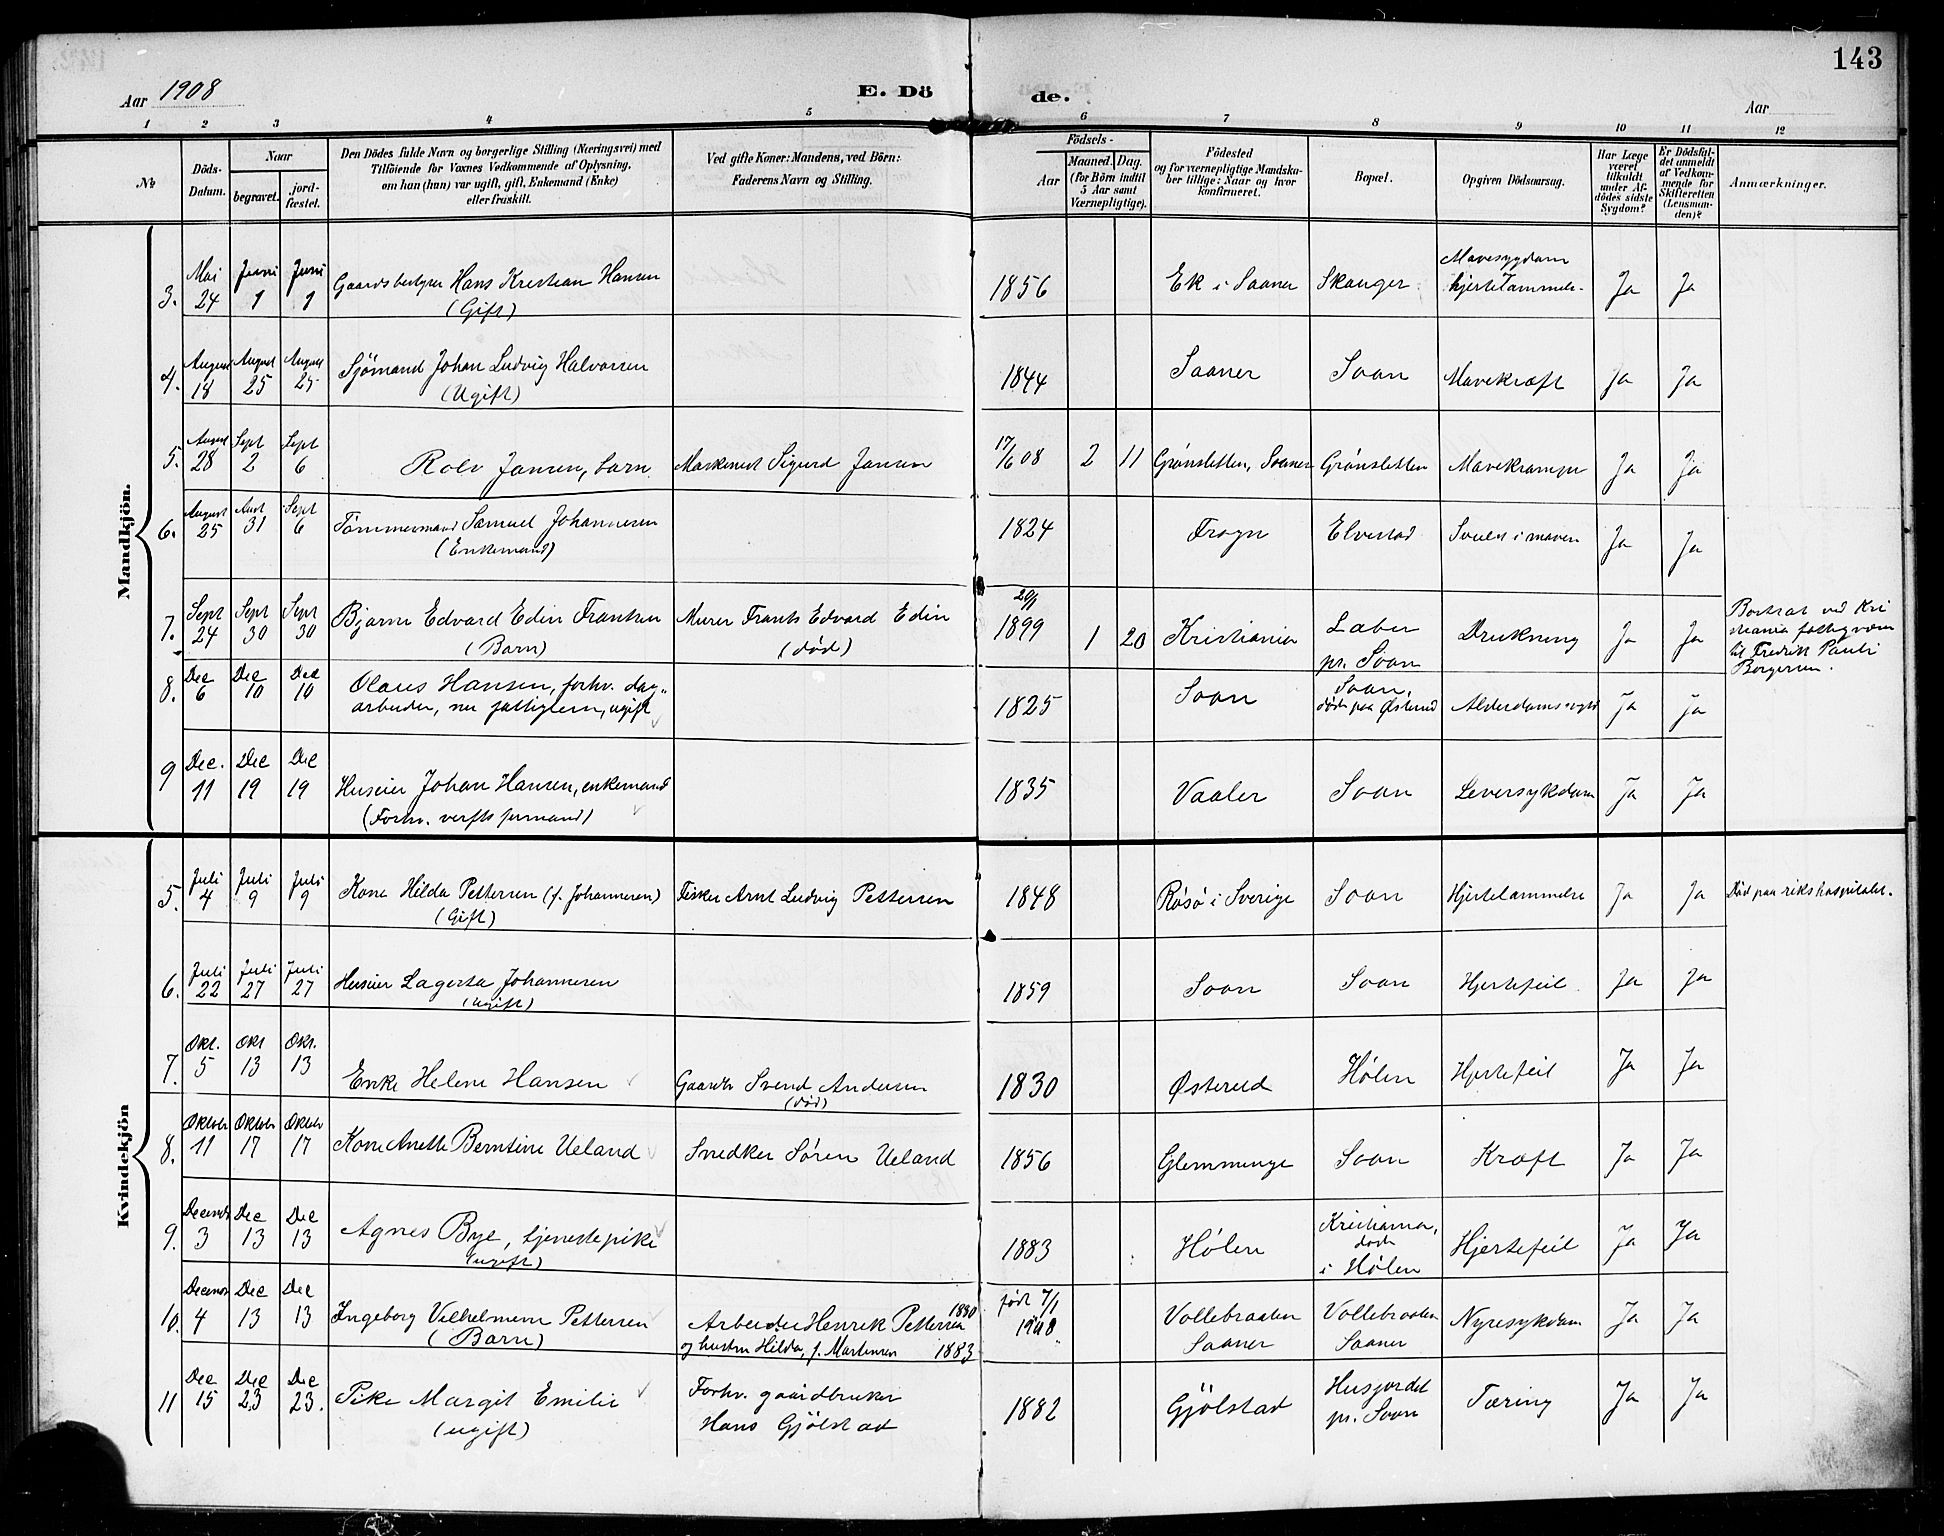 143
Aar 1908
E. Dö de.
Aar
1 2 3 4 5 6 7 8 9 10 11 12
№
Döds-Datum.
Naar
begravet.
jord-fæstet.
Den Dödes fulde Navn og borgerlige Stilling (Næringsvei) med
Tilföiende for Voxnes Vedkommende af Oplysning,
om han (hun) var ugift, gift, Enkemand (Enke)
eller fraskilt.
Ved gifte Koner: Mandens, ved Börn:
Faderens Navn og Stilling.
Födsels-
Aar
Maaned. Dag.
(for Börn indtil
5 Aar samt
Værnepligtige).
Födested
og for værnepligtige Mandska-
ber tillige: Naar og hvor
konfirmeret.
Bopæl.
Opgiven Dödsaarsag.
Har Læge
været
tilkaldt
under Af-
dödes sidste
Sygdom?
Er Dödsfal-
det anmeldt
af Vedkom-
mende for
Skifteretten
(Lensman-
den)?
Anmærkninger.
Mandkjön.
3. Mai 24 Juni 1 Juni 1 Gaardsbestyrer Hans Kristian Hansen (Gift) 1856 Ek i Saaner Skauger Mavesygdom hjertelammelse Ja Ja
4. August 18 August 25 August 25 Sjömand Johan Ludvig Halvorsen (Ugift) 1844 Saaner Soon Mavekræft Ja Ja
5. August 28 Sept 2 Sept 6 Rolv Jansen, barn Maskinist Sigurd Jansen 17/6 08 2 11 Grønsletten, Saaner Grønsletten Mavekrampe Ja Ja
6. August 25 Aust 31 Sept 6 Tømmermand Samuel Johannesen (Enkemand) 1824 Frogn Elvestad Svulst i maven Ja Ja
7. Sept 24 Sept 30 Sept 30 Bjarne Edvard Edin Frantsen (Barn) Murer Frants Edvard Edin (død) 20/1 1899 1 20 Kristiania Laber pr. Soon Drukning Ja Ja Bortsat ved Kristiania fattigvæsen til Fredrik Pauli Borgersen.
8. Dec 6 Dec 10 Dec 10 Olaus Hansen, forhv. dagarbeider, nu fattiglem, ugift 1825 Soon Soon, død paa Østerud Alderdomssvakhed Ja Ja
9 Dec. 11 Dec 19 Dec 19 Huseier Johan Hansen, enkemand (Forhv. verfts formand) 1835 Vaaler Soon Leversykdom Ja Ja
Kvindekjön
5. Juli 4 Juli 9 Juli 9 Kone Hilda Pettersen (f. Johannesen) (Gift) Fisker Arnt Ludvig Pettersen 1848 Røsø i Sverige Soon Hjertelammelse Ja Ja Død paa rikshospitalet.
6. Juli 22 Juli 27 Juli 27 Huseier Lagerta Johannesen (ugift) 1859 Soon Soon Hjertefeil Ja Ja
7. Okt. 5 Okt 13 Okt. 13 Enke Helene Hansen Gaardbr Svend Andersen (død) 1830 Østerud Hølen Hjertefeil Ja Ja
8. Oktober 11 Oktober 17 Oktober 17 Kone Anette Berntine Ueland Snedker Søren Ueland 1856 Glemminge Soon Kræft Ja Ja
9. December 3 Dec 13 Dec 13 Agnes Bye, tjenestepike (ugift) 1883 Hølen Kristiania, død i Hølen Hjertefeil Ja Ja
10. December 4 Dec 13 Dec 13 Ingeborg Vilhelmine Pettersen (Barn) Arbeider Henrik Pettersen 1880 og hustru Hilda, f. Martinsen 1883 født 7/1 1908 Vollebraaten Saaner Vollebraaten Saaner Nyresykdom Ja Ja
11 Dec 15 Dec 23 Dec 23. Pike Margit Emilie (ugift) Forhv. gaardbruker Hans Gjølstad 1882 Gjølstad Husjordet pr. Soon Tæring Ja Ja